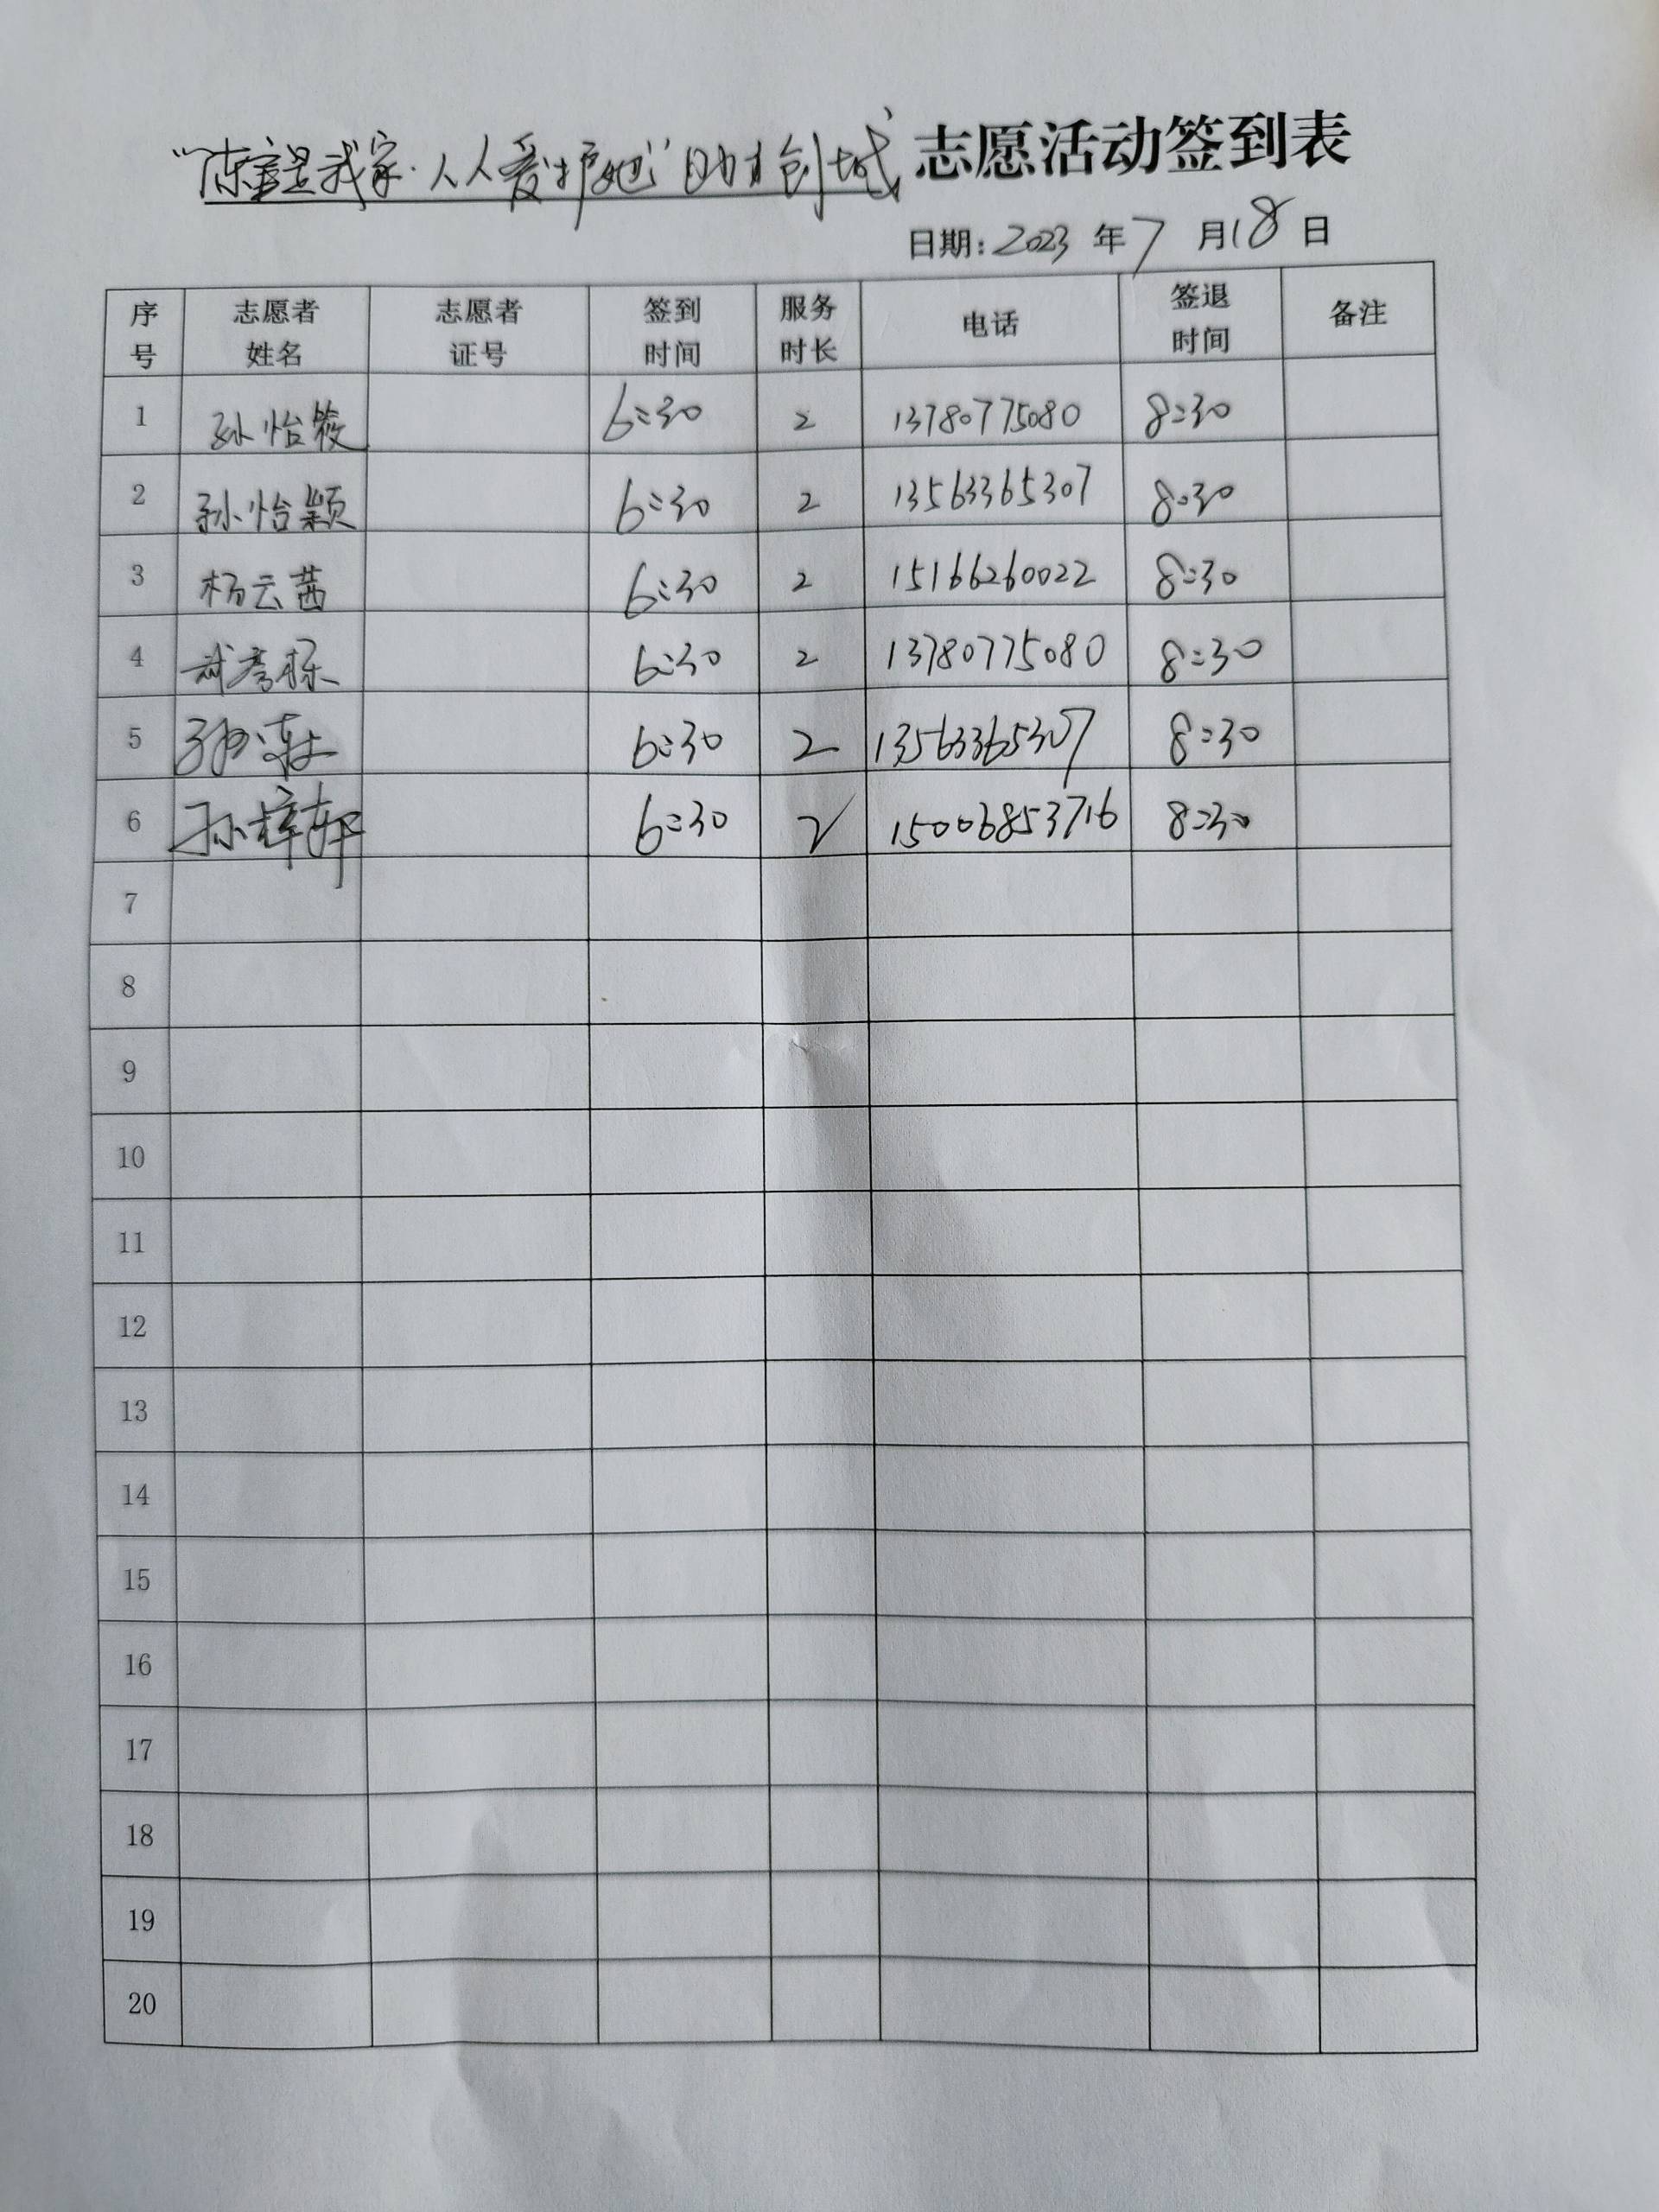 我家·人人爱护她"助力创城 志愿活动签到表
日期: 2023 年 7 月 18 日
序号 志愿者姓名 志愿者证号 签到时间 服务时长 电话 签退时间 备注
1 孙怡筱 6:30 2 13780775080 8:30
2 孙怡颖 6:30 2 13563365307 8:30
3 杨云茜 6:30 2 15166260022 8:30
4 6:30 2 13780775080 8:30
5 6:30 2 13563365307 8:30
6 孙梓轩 6:30 2 15006853716 8:30
7
8
9
10
11
12
13
14
15
16
17
18
19
20